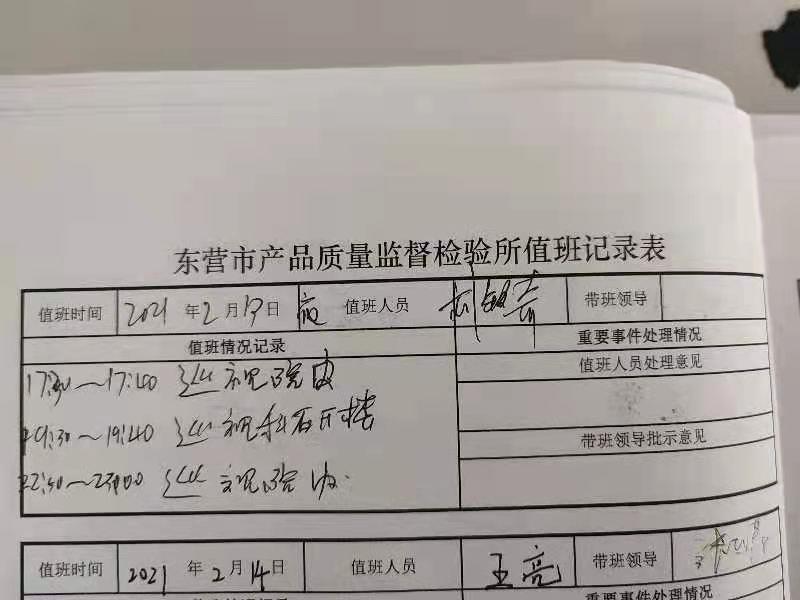 东营市产品质量监督检验所值班记录表
值班时间 2021 年 2 月 13 日 夜 值班人员 带班领导
值班情况记录 重要事件处理情况
17:30～17:40 巡视院内 值班人员处理意见
19:30～19:40 巡视科研楼 带班领导批示意见
22:50～23:00 巡视院内.
值班时间 2021 年 2 月 14 日 值班人员 王亮 带班领导
重要事件处理情况